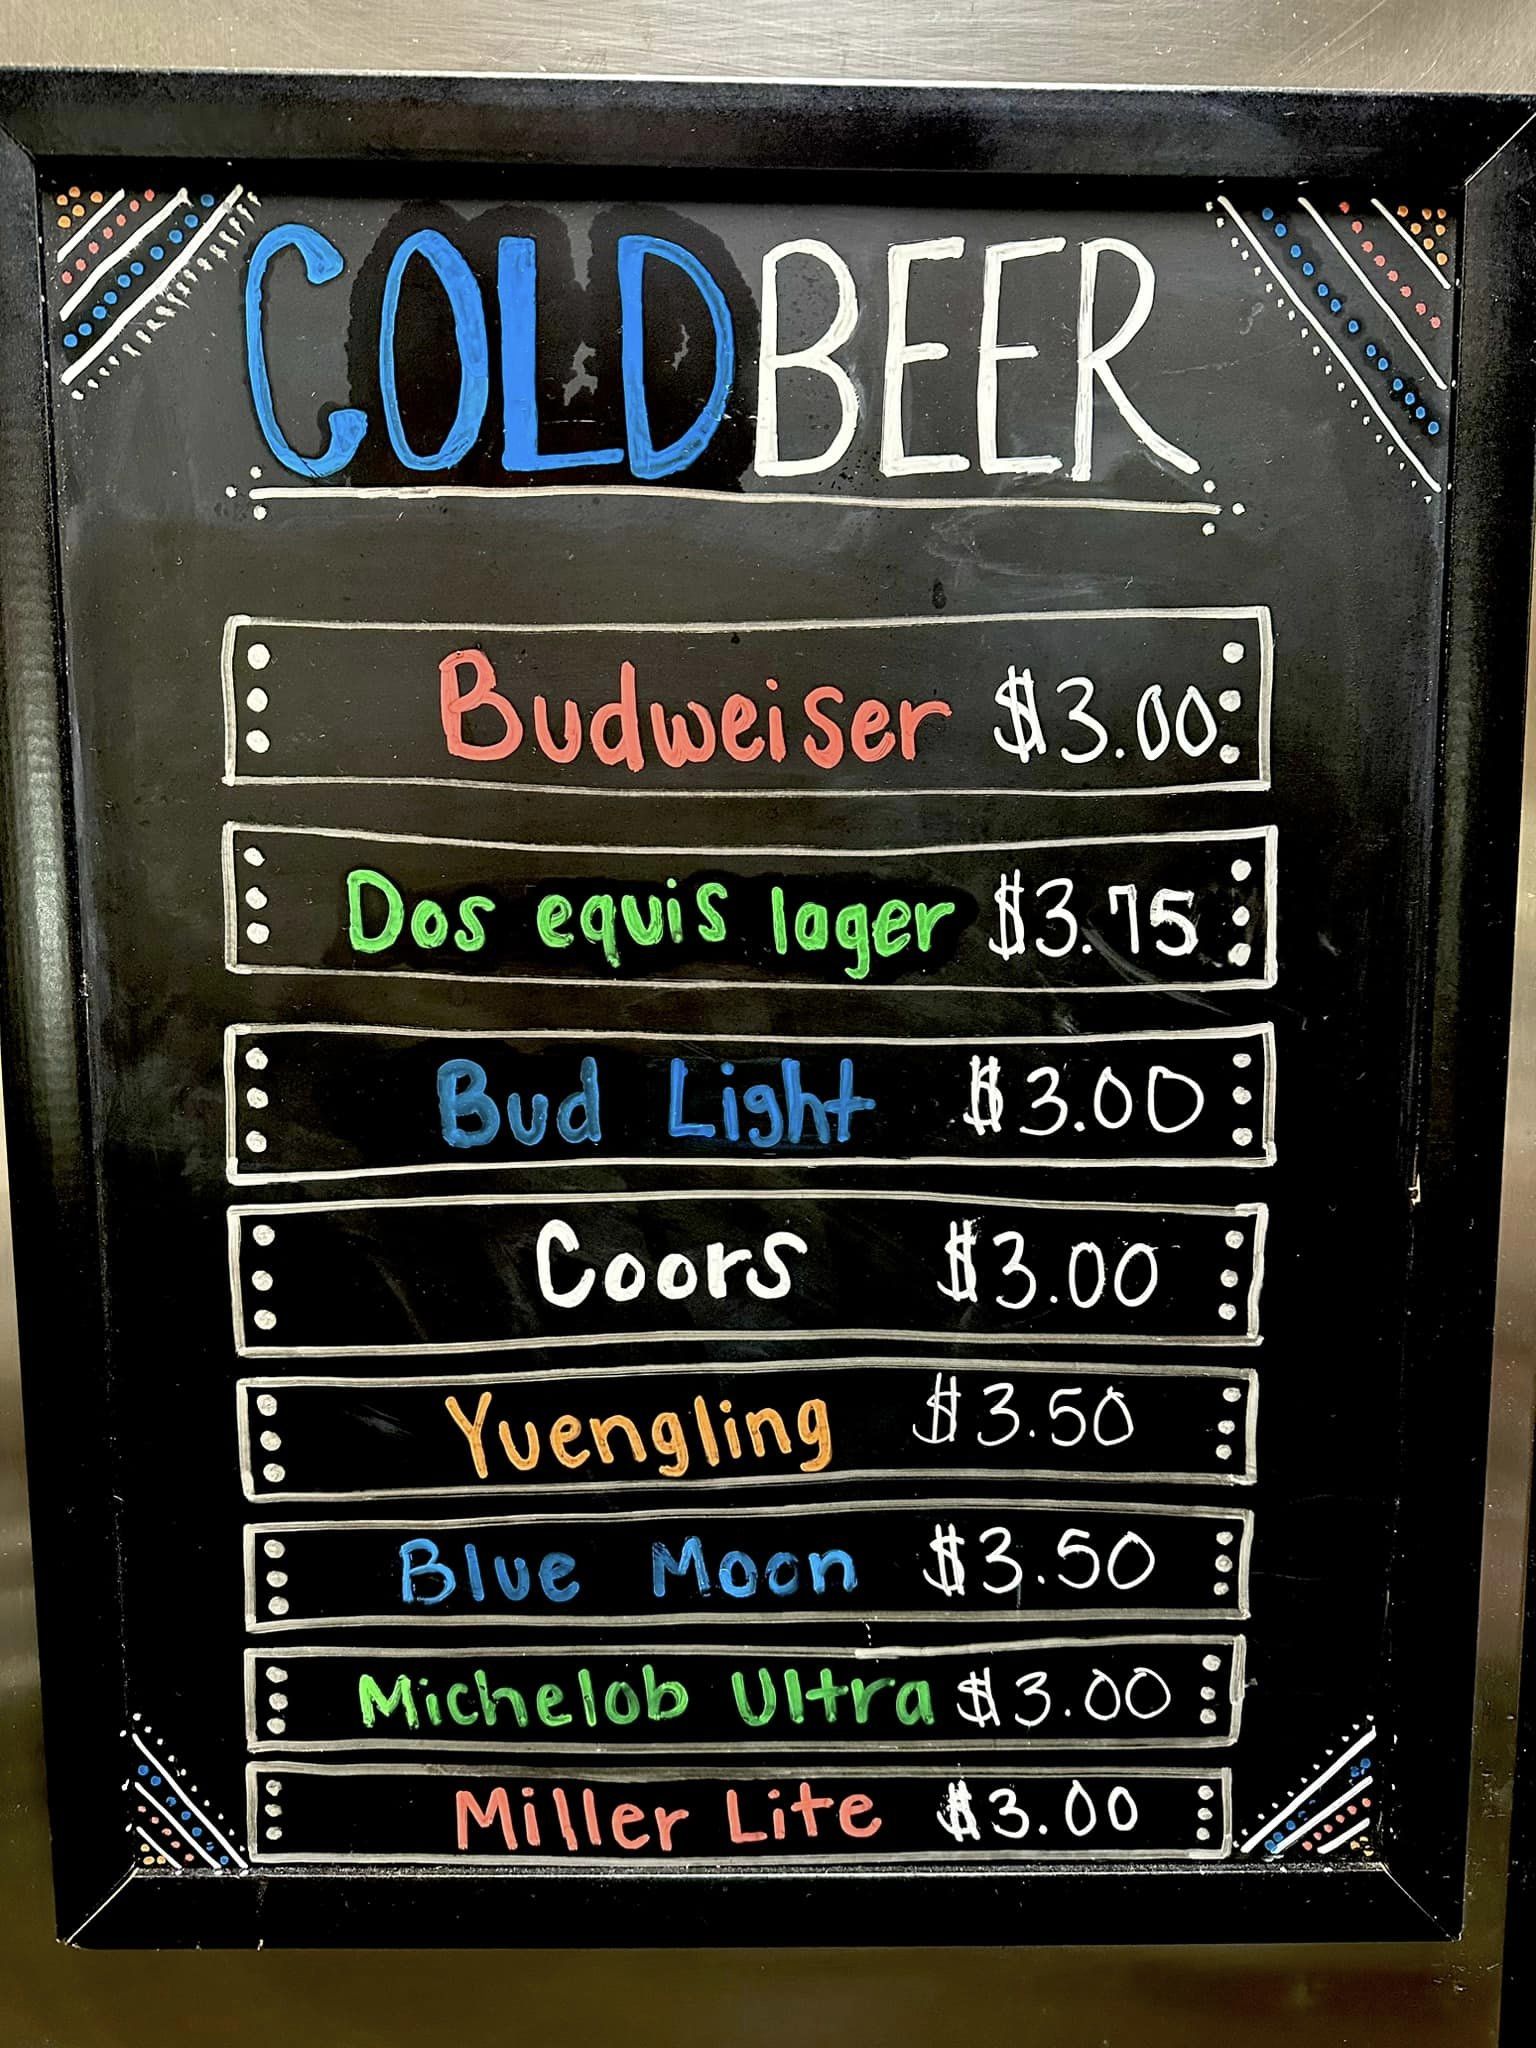 COLD BEER
Budweiser $3.00
Dos equis lager $3.75
Bud Light $3.00
Coors $3.00
Yuengling $3.50
Blue Moon $3.50
Michelob Ultra $3.00
Miller Lite $3.00